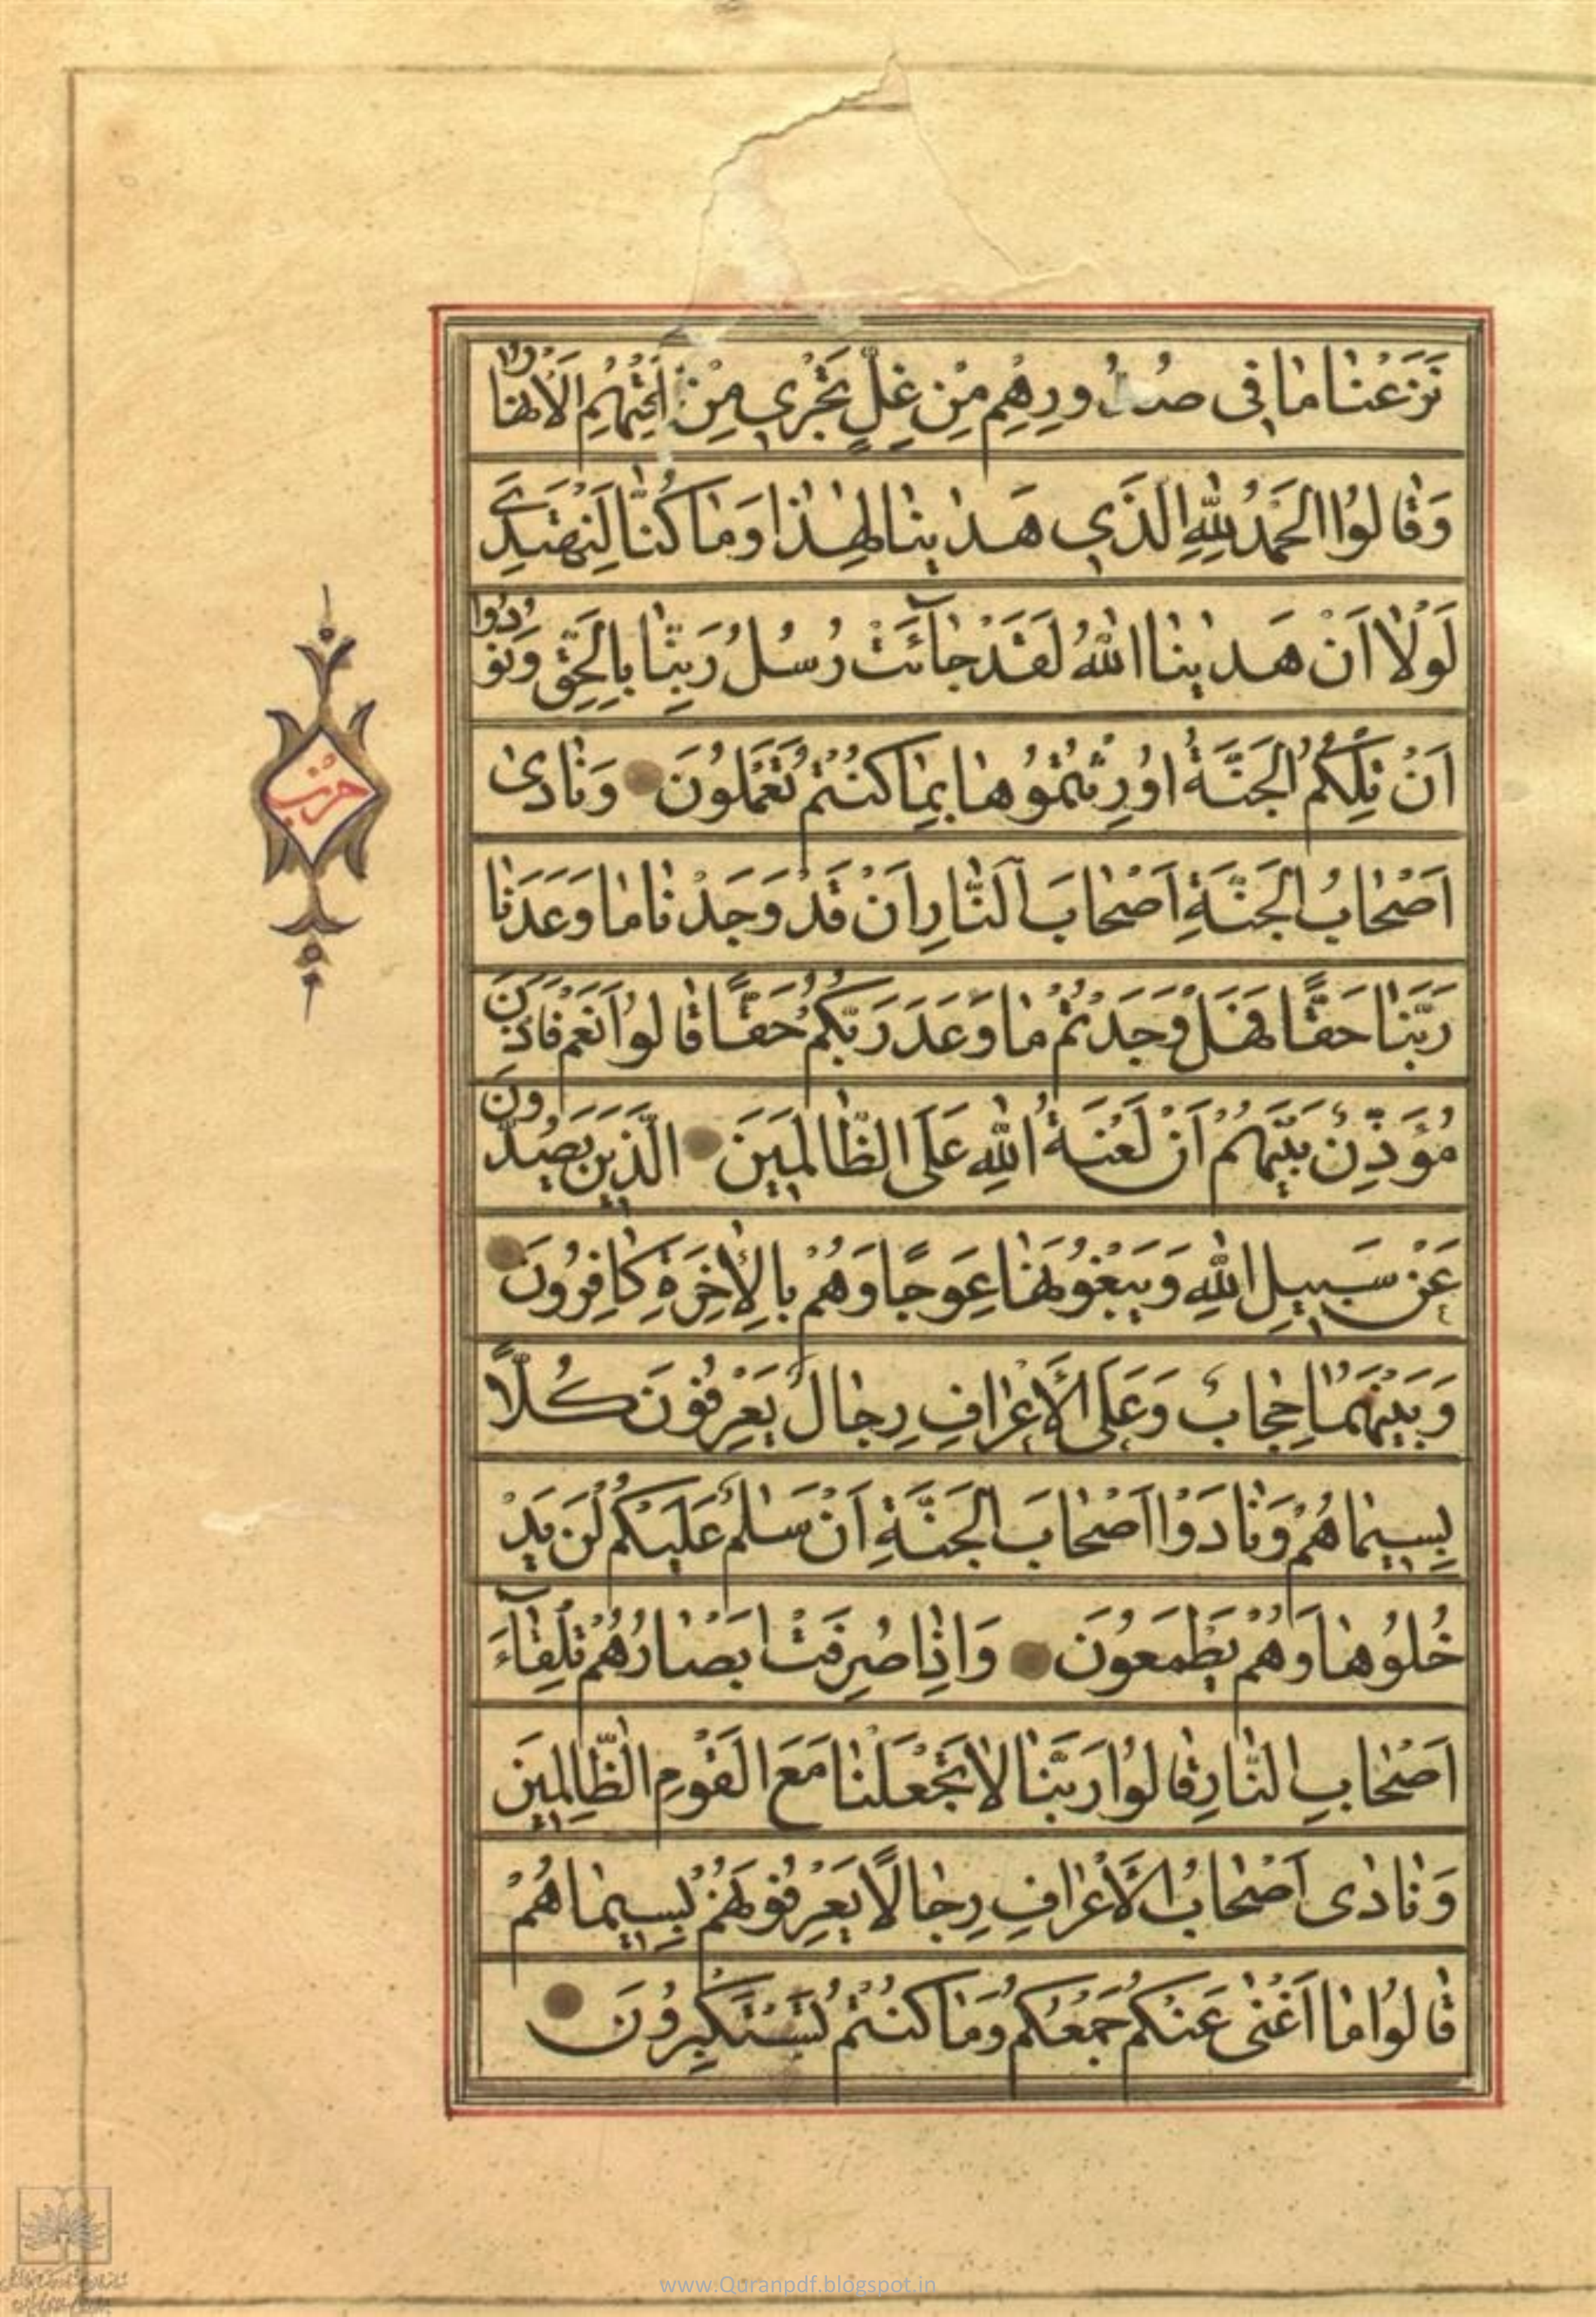 نَزَعْنَا مَا فِى صُدُورِهِمْ مِنْ غِلٍّ تَجْرِى مِنْ تَحْتِهِمُ الْاَنْهَارُ
وَقَالُوا الْحَمْدُ لِلّٰهِ الَّذِى هَدٰينَا لِهٰذَا وَمَا كُنَّا لِنَهْتَدِىَ
لَوْلَا اَنْ هَدٰينَا اللّٰهُ لَقَدْ جَآئَتْ رُسُلُ رَبِّنَا بِالْحَقِّ وَنُودُوا
اَنْ تِلْكُمُ الْجَنَّةُ اُورِثْتُمُوهَا بِمَا كُنْتُمْ تَعْمَلُونَ وَنَادٰى
اَصْحَابُ الْجَنَّةِ اَصْحَابَ النَّارِ اَنْ قَدْ وَجَدْنَا مَا وَعَدَنَا
رَبُّنَا حَقًّا فَهَلْ وَجَدْتُمْ مَا وَعَدَ رَبُّكُمْ حَقًّا قَالُوا نَعَمْ فَاَذَّنَ
مُؤَذِّنٌ بَيْنَهُمْ اَنْ لَعْنَةُ اللّٰهِ عَلَى الظَّالِمِينَ الَّذِينَ يَصُدُّونَ
عَنْ سَبِيلِ اللّٰهِ وَيَبْغُونَهَا عِوَجًا وَهُمْ بِالْاٰخِرَةِ كَافِرُونَ
وَبَيْنَهُمَا حِجَابٌ وَعَلَى الْاَعْرَافِ رِجَالٌ يَعْرِفُونَ كُلًّا
بِسِيمَاهُمْ وَنَادَوْا اَصْحَابَ الْجَنَّةِ اَنْ سَلٰمٌ عَلَيْكُمْ لَمْ يَدْ
خُلُوهَا وَهُمْ يَطْمَعُونَ وَاِذَا صُرِفَتْ اَبْصَارُهُمْ تِلْقَآءَ
اَصْحَابِ النَّارِ قَالُوا رَبَّنَا لَا تَجْعَلْنَا مَعَ الْقَوْمِ الظَّالِمِينَ
وَنَادٰى اَصْحَابُ الْاَعْرَافِ رِجَالًا يَعْرِفُونَهُمْ بِسِيمَاهُمْ
قَالُوا مَا اَغْنٰى عَنْكُمْ جَمْعُكُمْ وَمَا كُنْتُمْ تَسْتَكْبِرُونَ
حزب
www.Quranpdf.blogspot.in